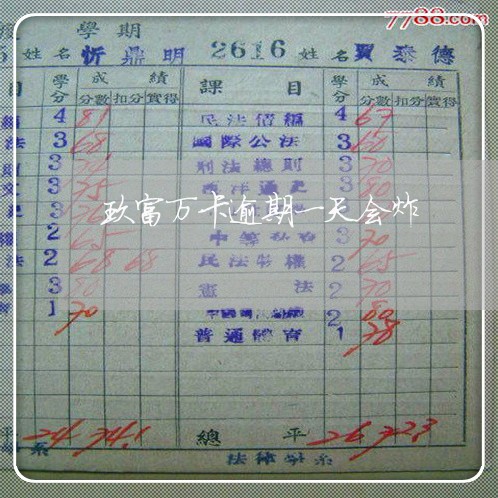 7788.com
學期
姓名 忻鼎明 2616 姓名 賈泰德
目 學分 成績 課目 學分 成績
分數 扣分 實得 分數 扣分 實得
4 81 民法債編 4 67
法 3 68 國際公法 3 60
3 刑法總則 3 70
文 3 75 西洋通史 3 80
3 3
玖富万卡逾期一天会炸
2 65 3 70
法 2 68 68 民法物權 2 65
3 80 憲法 2 70
育 1 70 2 80
普通體育 1 78
平 24 74.1 總平 26 72.3
系 法律學系